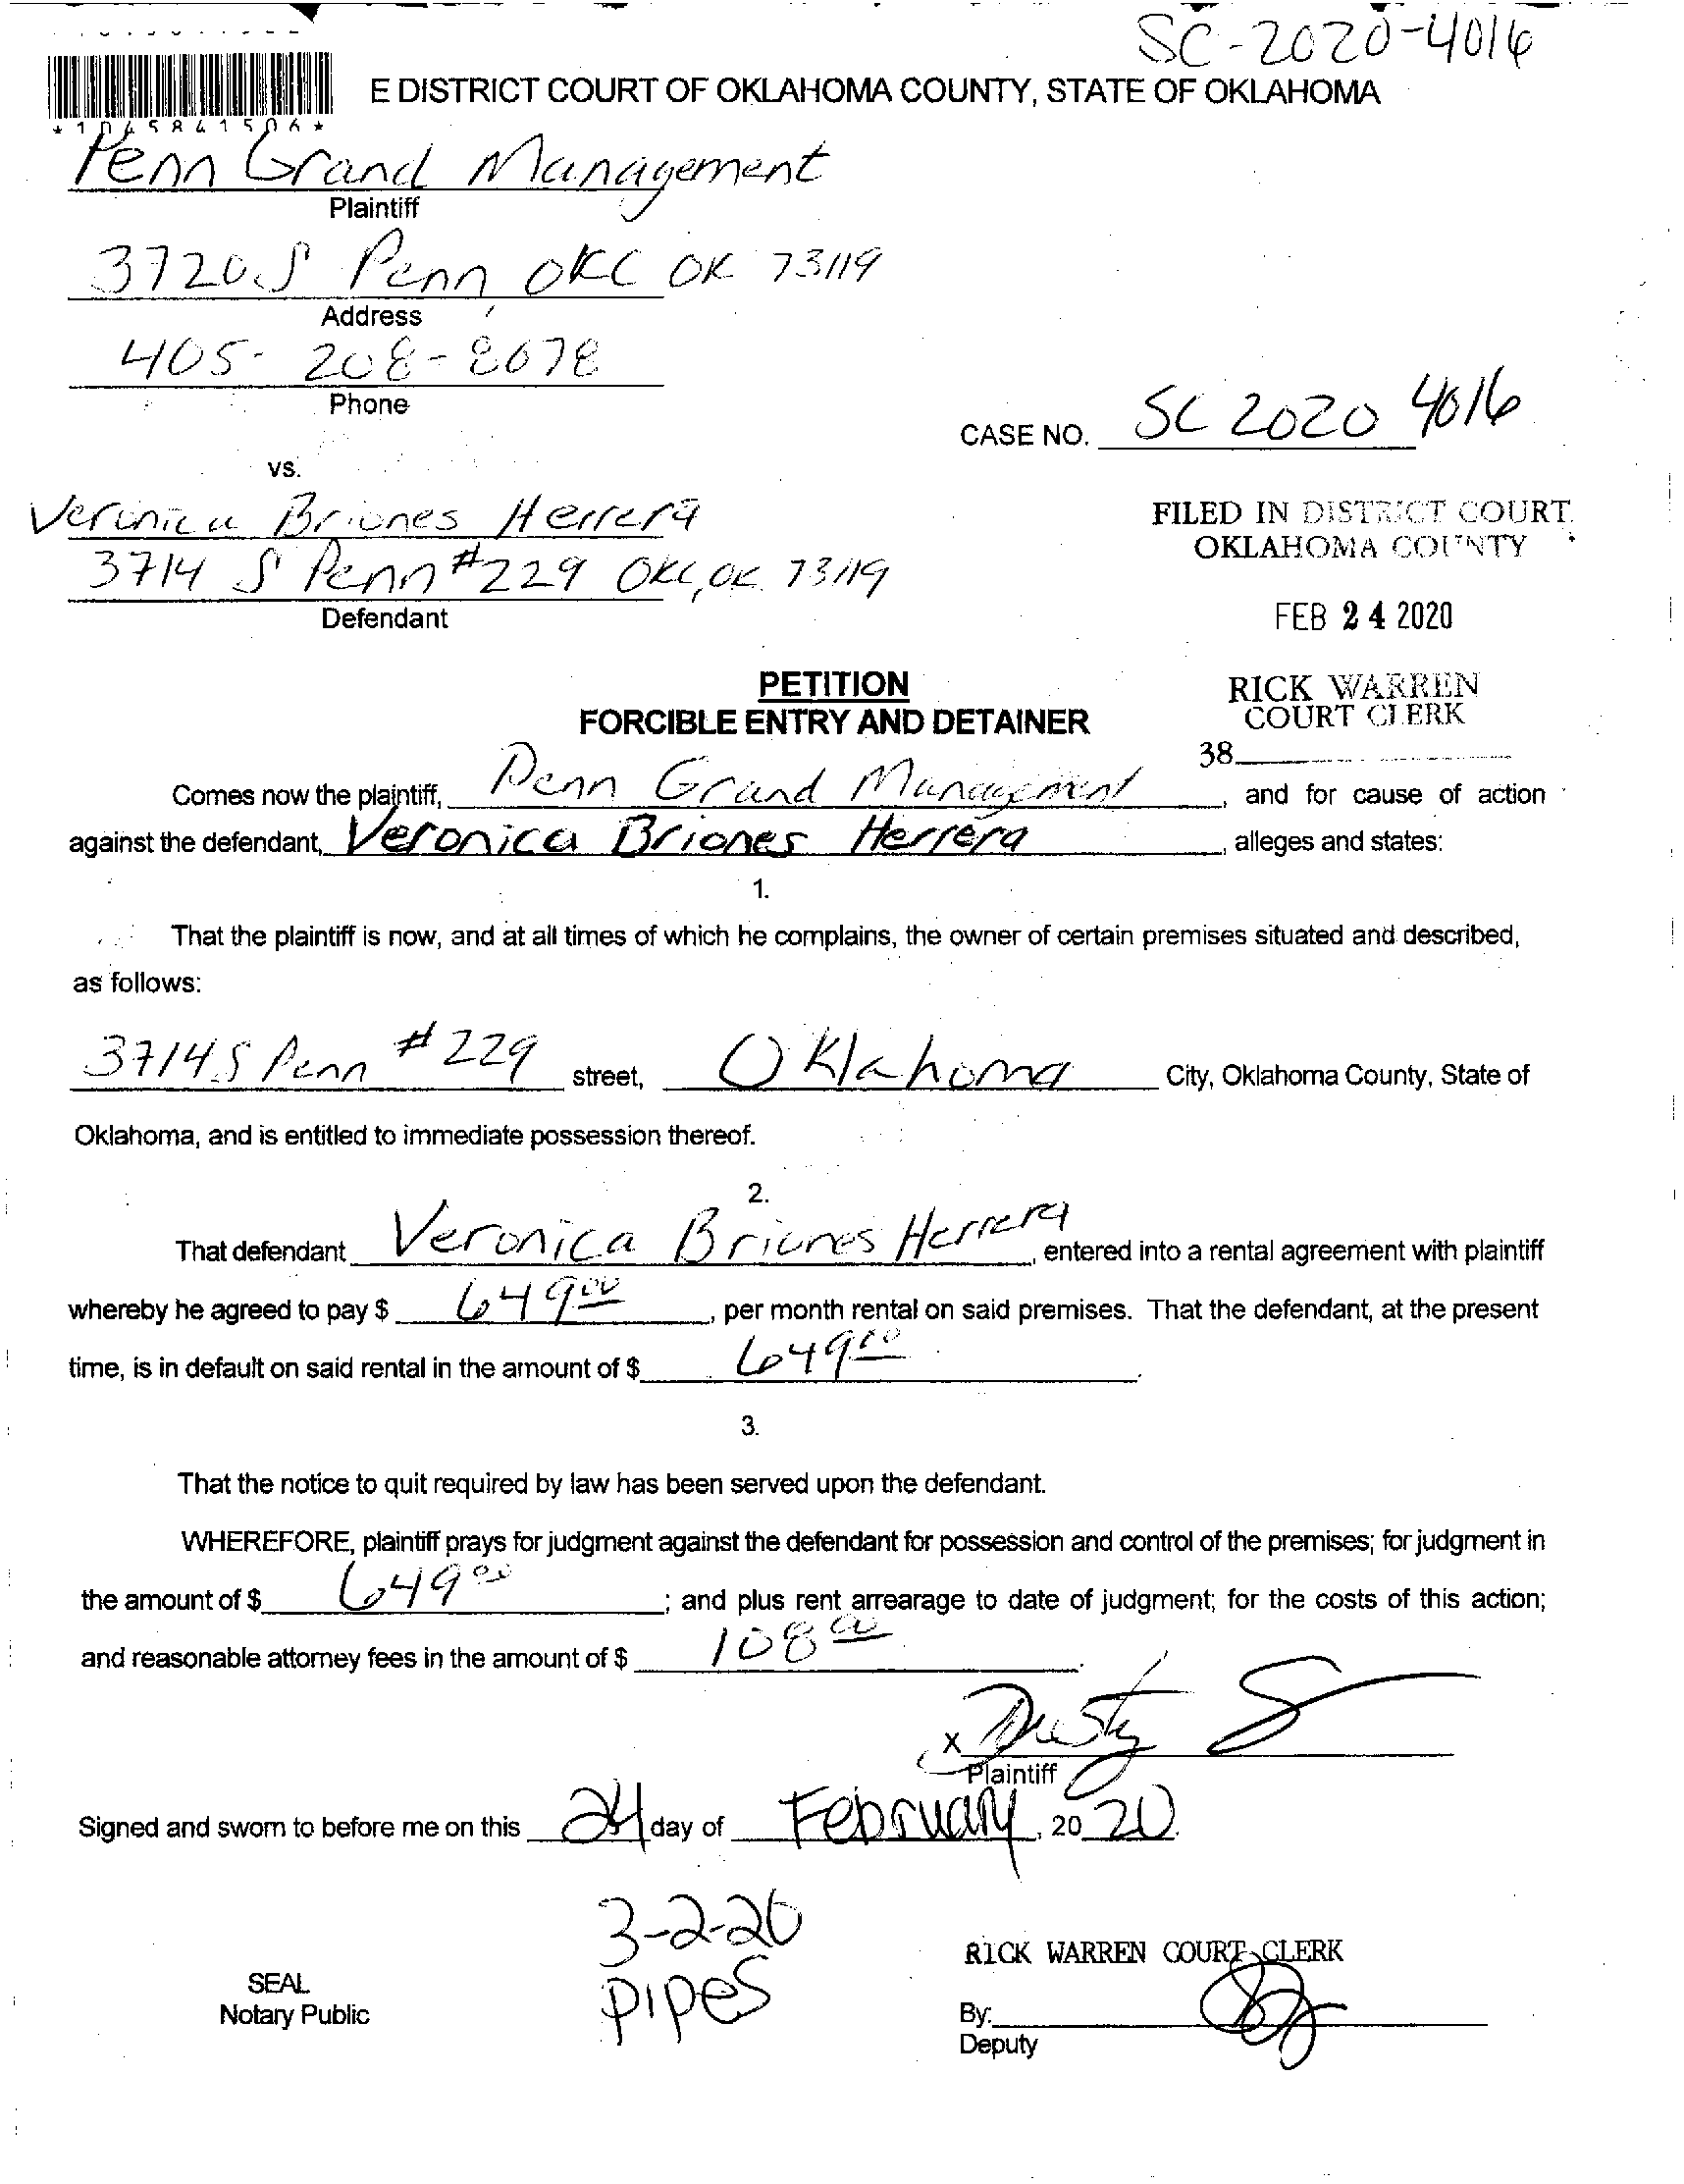 SC-2020-4016
E DISTRICT COURT OF OKLAHOMA COUNTY, STATE OF OKLAHOMA
*1045841506*
Penn Grand Management
Plaintiff
3720 S Penn OKC OK 73119
Address
405-208-8678
Phone
CASE NO. SC 2020 4016
vs.
Veronica Briones Herrera
3714 S Penn #229 OKC, OK 73119
Defendant
FILED IN DISTRICT COURT
OKLAHOMA COUNTY
FEB 24 2020
RICK WARREN
COURT CLERK
38
PETITION
FORCIBLE ENTRY AND DETAINER
Comes now the plaintiff, Penn Grand Management, and for cause of action
against the defendant, Veronica Briones Herrera, alleges and states:
1.
That the plaintiff is now, and at all times of which he complains, the owner of certain premises situated and described,
as follows:
3714 S Penn #229 street, Oklahoma City, Oklahoma County, State of
Oklahoma, and is entitled to immediate possession thereof.
2.
That defendant Veronica Briones Herrera, entered into a rental agreement with plaintiff
whereby he agreed to pay $ 649 00, per month rental on said premises. That the defendant, at the present
time, is in default on said rental in the amount of $ 649 00.
3.
That the notice to quit required by law has been served upon the defendant.
WHEREFORE, plaintiff prays for judgment against the defendant for possession and control of the premises; for judgment in
the amount of $ 649 00; and plus rent arrearage to date of judgment; for the costs of this action;
and reasonable attorney fees in the amount of $ 108 00.
x Dusty S
Plaintiff
Signed and sworn to before me on this 24 day of February, 20 20.
3-2-20
pipes
SEAL
Notary Public
RICK WARREN COURT CLERK
By:
Deputy